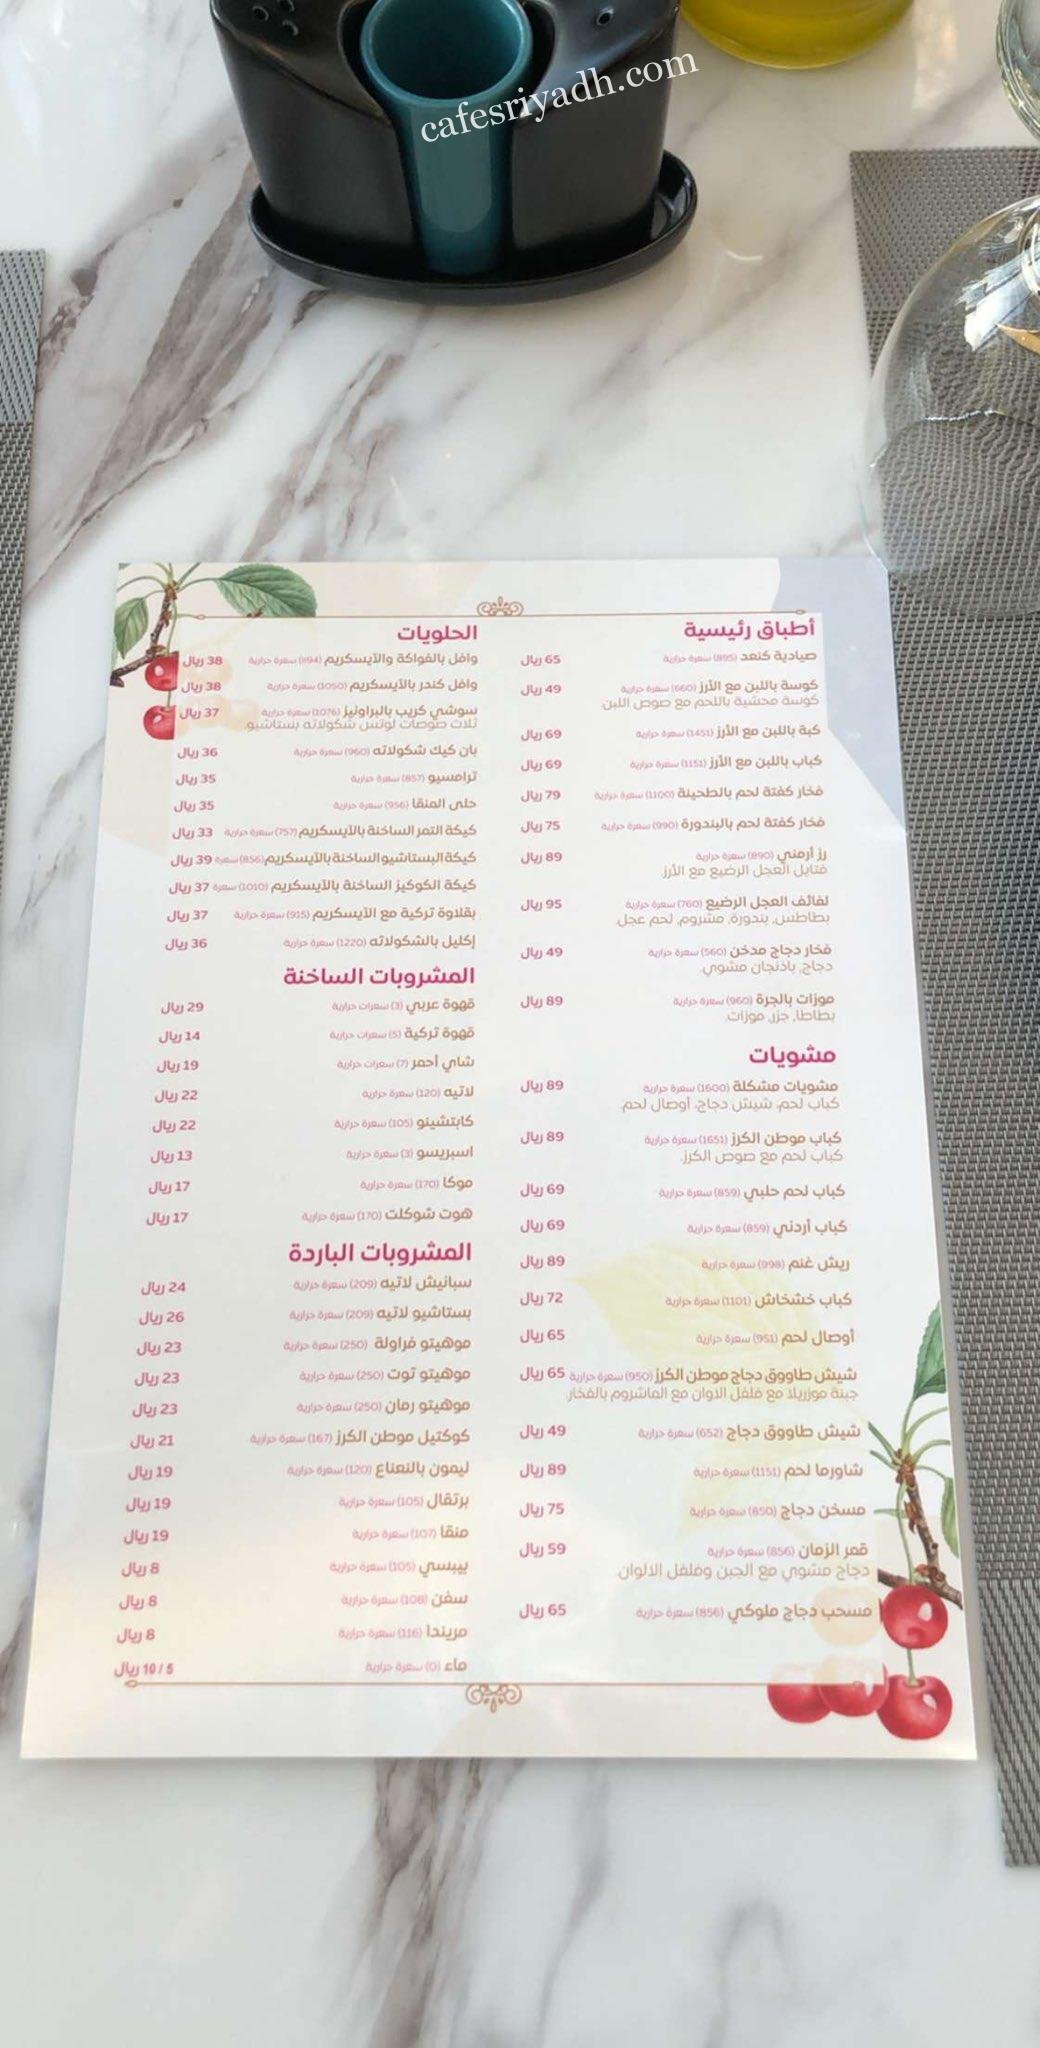 cafesriyadh.com
أطباق رئيسية
صيادية كنعد (895) سعرة حرارية 65 ريال
كوسة باللبن مع الأرز (660) سعرة حرارية 49 ريال
كوسة محشية باللحم مع صوص اللبن.
كبة باللبن مع الأرز (1451) سعرة حرارية 69 ريال
كباب باللبن مع الأرز (1151) سعرة حرارية 69 ريال
فخار كفتة لحم بالطحينة (1100) سعرة حرارية 79 ريال
فخار كفتة لحم بالبندورة (990) سعرة حرارية 75 ريال
رز أرمني (890) سعرة حرارية 89 ريال
فتايل العجل الرضيع مع الأرز.
لفائف العجل الرضيع (760) سعرة حرارية 95 ريال
بطاطس, بندورة, مشروم, لحم عجل.
فخار دجاج مدخن (560) سعرة حرارية 49 ريال
دجاج, باذنجان مشوي.
موزات بالجرة (960) سعرة حرارية 89 ريال
بطاطا, جزر, موزات.
مشويات
مشويات مشكلة (1600) سعرة حرارية 89 ريال
كباب لحم, شيش دجاج, أوصال لحم.
كباب موطن الكرز (1651) سعرة حرارية 89 ريال
كباب لحم مع صوص الكرز.
كباب لحم حلبي (859) سعرة حرارية 69 ريال
كباب أردني (859) سعرة حرارية 69 ريال
ريش غنم (998) سعرة حرارية 89 ريال
كباب خشخاش (1101) سعرة حرارية 72 ريال
أوصال لحم (951) سعرة حرارية 65 ريال
شيش طاووق دجاج موطن الكرز (950) سعرة حرارية 65 ريال
جبنة موزريلا مع فلفل الاوان مع الماشروم بالفخار.
شيش طاووق دجاج (652) سعرة حرارية 49 ريال
شاورما لحم (1151) سعرة حرارية 89 ريال
مسخن دجاج (850) سعرة حرارية 75 ريال
قمر الزمان (856) سعرة حرارية 59 ريال
دجاج مشوي مع الجبن وفلفل الالوان.
مسحب دجاج ملوكي (856) سعرة حرارية 65 ريال
الحلويات
وافل بالفواكة والآيسكريم (1194) سعرة حرارية 38 ريال
وافل كندر بالآيسكريم (1050) سعرة حرارية 38 ريال
سوشي كريب بالبراونيز (1076) سعرة حرارية 37 ريال
ثلاث صوصات لوتس شكولاته بستاشيو.
بان كيك شكولاته (960) سعرة حرارية 36 ريال
ترامسيو (857) سعرة حرارية 35 ريال
حلى المنقا (956) سعرة حرارية 35 ريال
كيكة التمر الساخنة بالآيسكريم (757) سعرة حرارية 33 ريال
كيكة البستاشيو الساخنة بالآيسكريم (856) سعرة 39 ريال
كيكة الكوكيز الساخنة بالآيسكريم (1010) سعرة 37 ريال
بقلاوة تركية مع الآيسكريم (915) سعرة حرارية 37 ريال
إكليل بالشكولاته (1220) سعرة حرارية 36 ريال
المشروبات الساخنة
قهوة عربي (3) سعرات حرارية 29 ريال
قهوة تركية (5) سعرات حرارية 14 ريال
شاي أحمر (7) سعرات حرارية 19 ريال
لاتيه (120) سعرة حرارية 22 ريال
كابتشينو (105) سعرة حرارية 22 ريال
اسبريسو (3) سعرة حرارية 13 ريال
موكا (170) سعرة حرارية 17 ريال
هوت شوكلت (170) سعرة حرارية 17 ريال
المشروبات الباردة
سبانيش لاتيه (209) سعرة حرارية 24 ريال
بستاشيو لاتيه (209) سعرة حرارية 26 ريال
موهيتو فراولة (250) سعرة حرارية 23 ريال
موهيتو توت (250) سعرة حرارية 23 ريال
موهيتو رمان (250) سعرة حرارية 23 ريال
كوكتيل موطن الكرز (167) سعرة حرارية 21 ريال
ليمون بالنعناع (120) سعرة حرارية 19 ريال
برتقال (105) سعرة حرارية 19 ريال
منقا (107) سعرة حرارية 19 ريال
بيبسي (105) سعرة حرارية 8 ريال
سفن (108) سعرة حرارية 8 ريال
مريندا (116) سعرة حرارية 8 ريال
ماء (0) سعرة حرارية 5 / 10 ريال